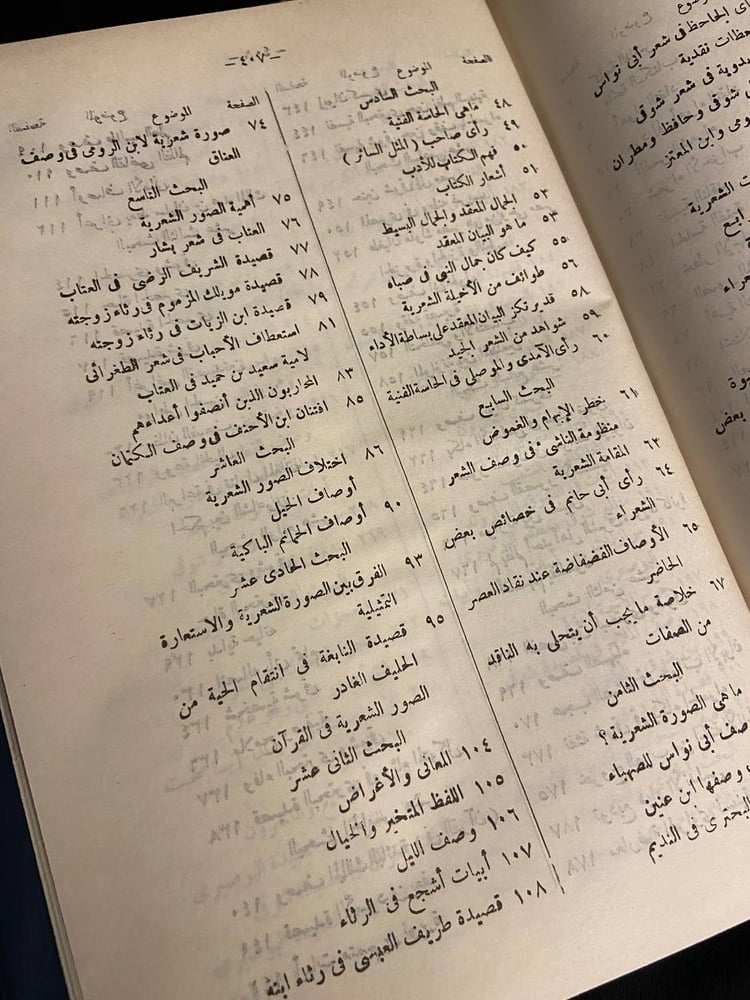 — ٤٠٧ —
الصفحة الموضوع
البحث السادس
٤٨ ماهي الحاسة الفنية
٤٩ رأى صاحب ( المثل السائر )
٥٠ فهم الكتاب للأدب
٥١ أشعار الكتاب
٥٢ الجمال المعقد والجمال البسيط
٥٣ ما هو البيان المعقد
٥٥ كيف كان جمال النبى فى صباه
٥٦ طوائف من الأخيلة الشعرية
٥٨ قدير تكز البيان المعقد على بساطة الأداء
٥٩ شواهد من الشعر الجيد
٦٠ رأى الآمدى والموصلى فى الحاسة الفنية
البحث السابع
٦١ خطر الإبهام والغموض
منظومة الناشىء فى وصف الشعر
٦٣ المقامة الشعرية
٦٤ رأى أبى حاتم فى خصائص بعض
الشعراء
٦٥ الأوصاف الفضفاضة عند نقاد العصر
الحاضر
٦٧ خلاصة ما يجب أن يتحلى به الناقد
من الصفات
البحث الثامن
ما هى الصورة الشعرية ؟
صف أبى نواس للصهباء
وصفها ابن عنين
البحترى فى النديم
الصفحة الموضوع
٧٤ صورة شعرية لابن الرومى فى وصف
العناق
البحث التاسع
٧٥ أهمية الصور الشعرية
٧٦ العتاب فى شعر بشار
٧٧ قصيدة الشريف الرضى فى العتاب
٧٨ قصيدة مويلك المزموم فى رثاء زوجته
٧٩ قصيدة ابن الزيات فى رثاء زوجته
٨١ استعطاف الأحباب فى شعر الطغرائى
لامية سعيد بن حميد فى العتاب
٨٣ المحاربون الذين أنصفوا أعداءهم
٨٥ افتنان ابن الأحنف فى وصف الكتمان
البحث العاشر
٨٦ اختلاف الصور الشعرية
أوصاف الخيل
٩٠ أوصاف الحمائم الباكية
البحث الحادى عشر
٩٣ الفرق بين الصورة الشعرية والاستعارة
التمثيلية
٩٥ قصيدة النابغة فى انتقام الحية من
الحليف الغادر
الصور الشعرية فى القرآن
البحث الثانى عشر
١٠٤ المعانى والأغراض
١٠٥ اللفظ المتخير والخيال
١٠٦ وصف الليل
١٠٧ أبيات أشجع فى الرثاء
١٠٨ قصيدة طريف العبسى فى رثاء ابنه
الجاحظ فى شعر أبى نواس
نقدية
فى شعر شوقى
شوقى وحافظ ومطران
ومى وابن المعتز
الشعرية
بعض